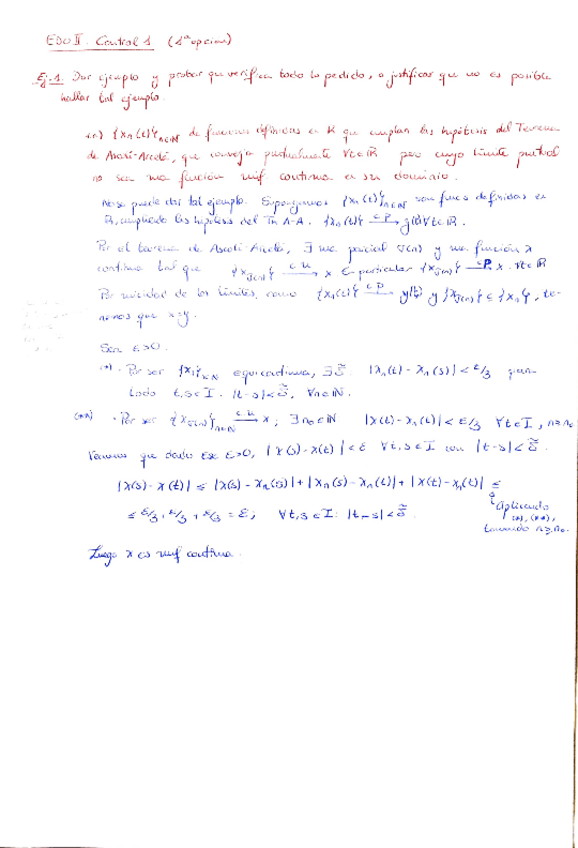 EDO II. Control 1 (1ª opcion)
Ej. 1. Dar ejemplo y probar que verifica todo lo pedido, o justificar que no es posible
hallar tal ejemplo.
{xn(t)}n∈ℕ de funciones definidas en ℝ que cumplan las hipótesis del Teorema
de Ascoli-Arzelá, que converja puntualmente ∀t∈ℝ pero cuyo límite puntual
no sea una función unif. continua en su dominio.
No se puede dar tal ejemplo. Supongamos {xn(t)}n∈ℕ son funcs definidas en
ℝ, cumpliendo las hipótesis del Tm A-A. {xn(t)} c.p.→ y(t) ∀t∈ℝ.
Por el teorema de Ascoli-Arzelá, ∃ una parcial σ(n) y una función x
continua tal que {xσ(n)} c.u.→ x En particular {xσ(n)} c.p.→ x ∀t∈ℝ
Por unicidad de los límites, como {xn(t)} c.p.→ y(t) y {xσ(n)} ⊆ {xn}, te-
nemos que x=y.
Sea ε>0.
(*) - Por ser {xn}n∈ℕ equicontinua, ∃ δ̃ : |xn(t) - xn(s)| < ε/3
t,s∈I. |t-s|<δ̃, ∀n∈ℕ.
(**) - Por ser {xσ(n)}n∈ℕ c.u.→ x, ∃ n0∈ℕ |x(t) - xn(t)| < ε/3 ∀t∈I, n≥n0
Veamos que dado ese ε>0, |x(s)-x(t)| < ε ∀t,s∈I con |t-s|<δ̃.
|x(s)-x(t)| ≤ |x(s)-xn(s)| + |xn(s)-xn(t)| + |x(t)-xn(t)| ≤
≤ ε/3 + ε/3 + ε/3 = ε; ∀t,s∈I: |t-s|<δ̃.
Aplicando
(*), (**),
tomando n≥n0.
Luego x es unif continua.